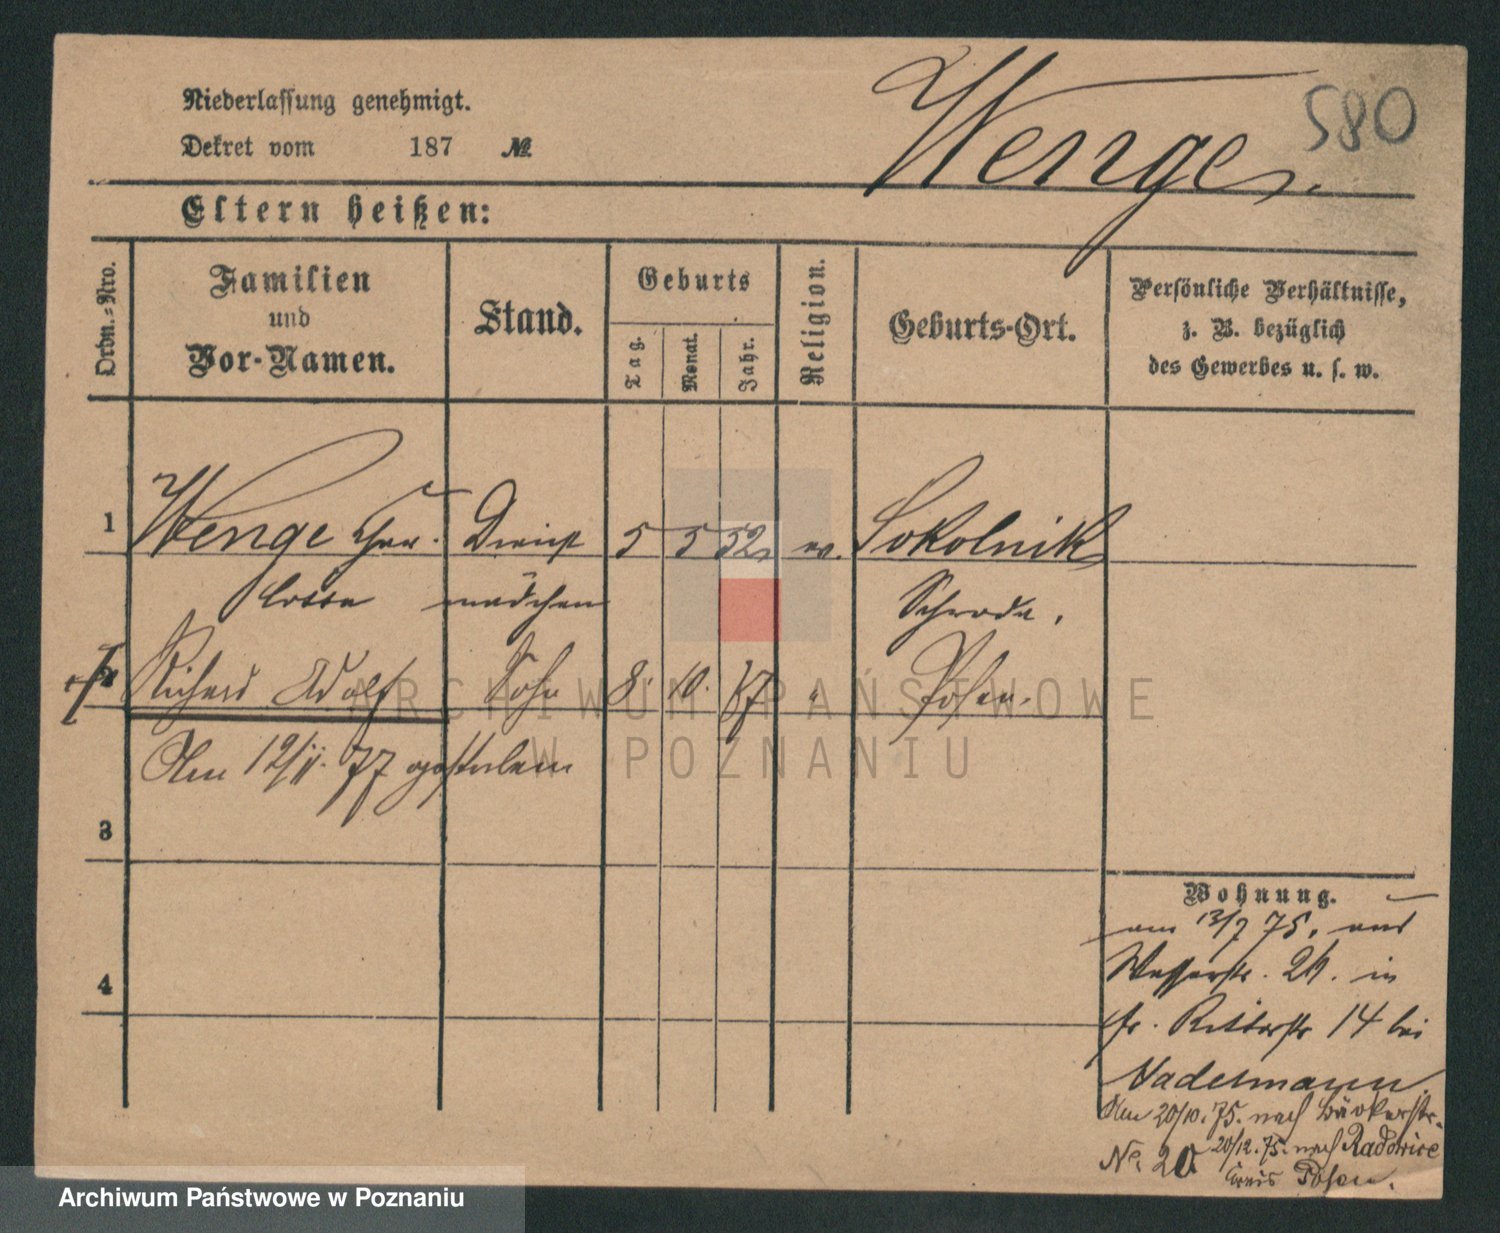 Niederlassung genehmigt.
Dekret vom 187 №
Wenge.
580
Eltern heißen:
Ordn.-Nro.
Familien
und
Vor-Namen.
Stand.
Geburts
Tag.
Monat.
Jahr.
Religion.
Geburts-Ort.
Persönliche Verhältnisse,
z. B. bezüglich
des Gewerbes u. s. w.
1 Wenge Dienst 5 5 52 ev. Sokolnik
mädchen Schroda.
2 Richard Adolf Sohn 8. 10. " Posen.
Am 12/11. 77 gestorben
3
4
Wohnung.
am 13/7 75. aus
Wasserstr. 26. in
Ritterstr 14 bei
Nadelmann.
Am 20/10. 75. nach Bäckerstr.
No. 20. 20/12. 75. nach Radowice
Kreis Posen.
ARCHIWUM PAŃSTWOWE
W POZNANIU
Archiwum Państwowe w Poznaniu